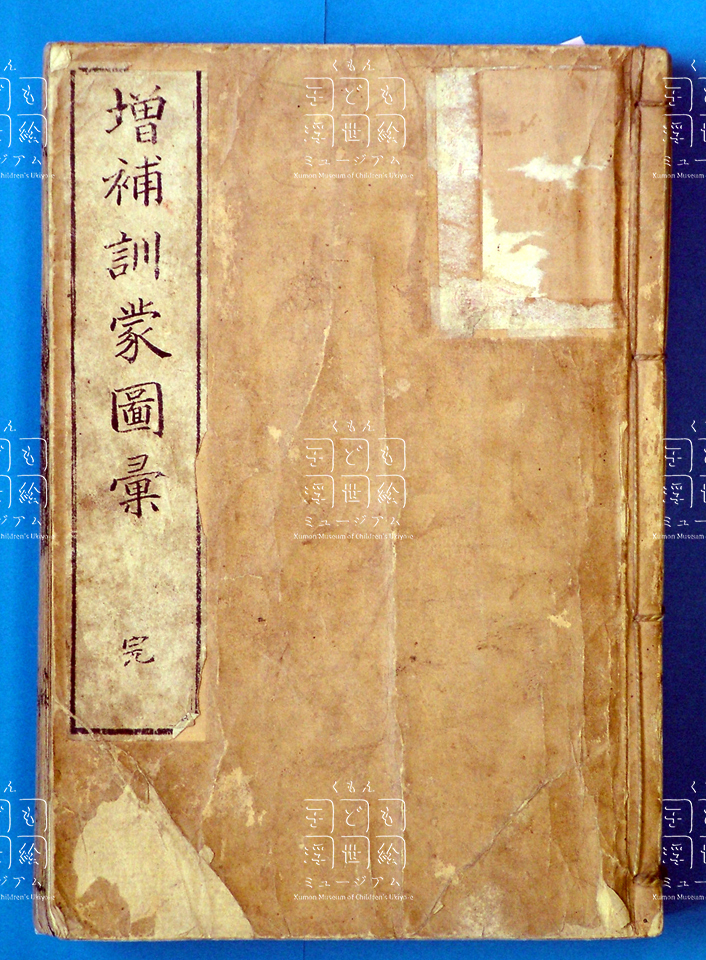 増補訓蒙圖彙
完
くもん
子ども
浮世絵
ミュージアム
Kumon Museum of Children's Ukiyo-e